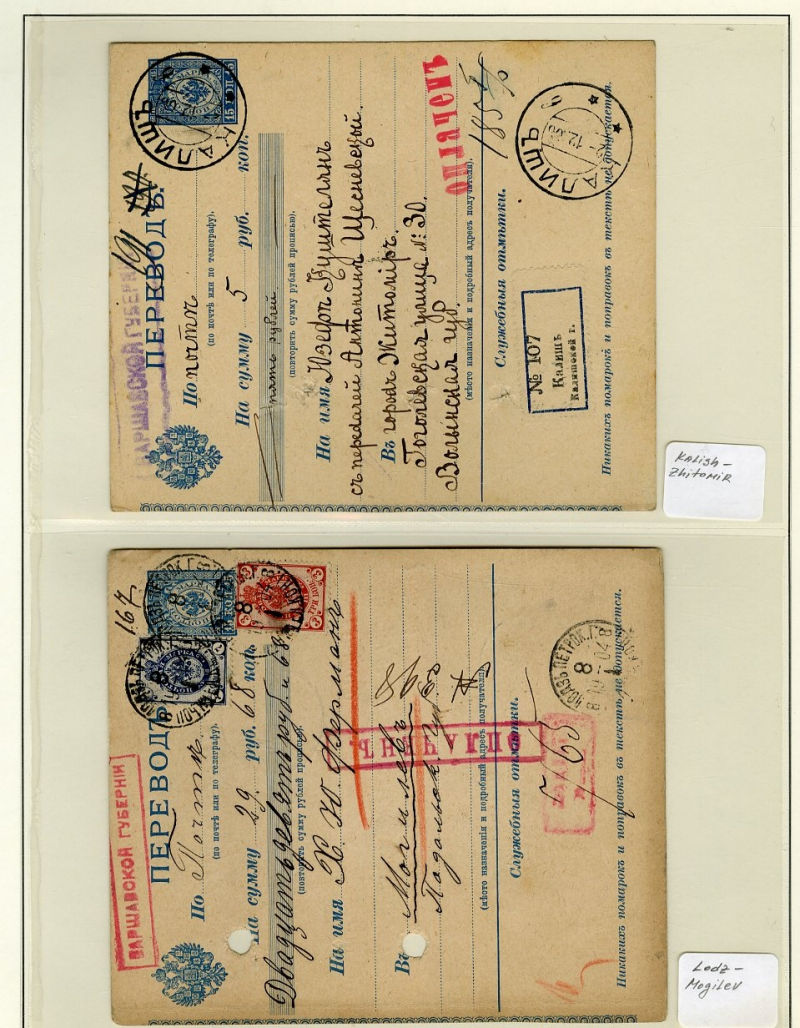 ВАРШАВСКОЙ ГУБЕРНІИ
ПЕРЕВОДЪ.
По почтѣ
(по почтѣ или по телеграфу).
На сумму 5 руб. коп.
пять рублей
(повторить сумму рублей прописью).
На имя Юзефъ Куштелянъ
съ передачей Антонинѣ Щесневской.
Въ городъ Житоміръ.
(мѣсто назначенія и подробный адресъ получателя).
Гоголевская улица №: 30.
Волынская губ.
Служебныя отмѣтки.
Никакихъ помарокъ и поправокъ въ текстѣ не допускается.
КАЛИШЪ
ОПЛАЧЕНЪ
КАЛИШЪ
№ 107
Калишъ
Калишской г.
Kalish –
Zhitomir
167
ВАРШАВСКОЙ ГУБЕРНІИ
ПЕРЕВОДЪ.
По Почтѣ
(по почтѣ или по телеграфу).
На сумму 29 руб. 68 коп.
Двадцать девять руб и 68
(повторить сумму рублей прописью).
На имя
Въ Могилевъ
Подольск. губ.
(мѣсто назначенія и подробный адресъ получателя).
Служебныя отмѣтки.
Никакихъ помарокъ и поправокъ въ текстѣ не допускается.
ТРИ КОП.
ОПЛАЧЕНЪ
Lodz –
Mogilev